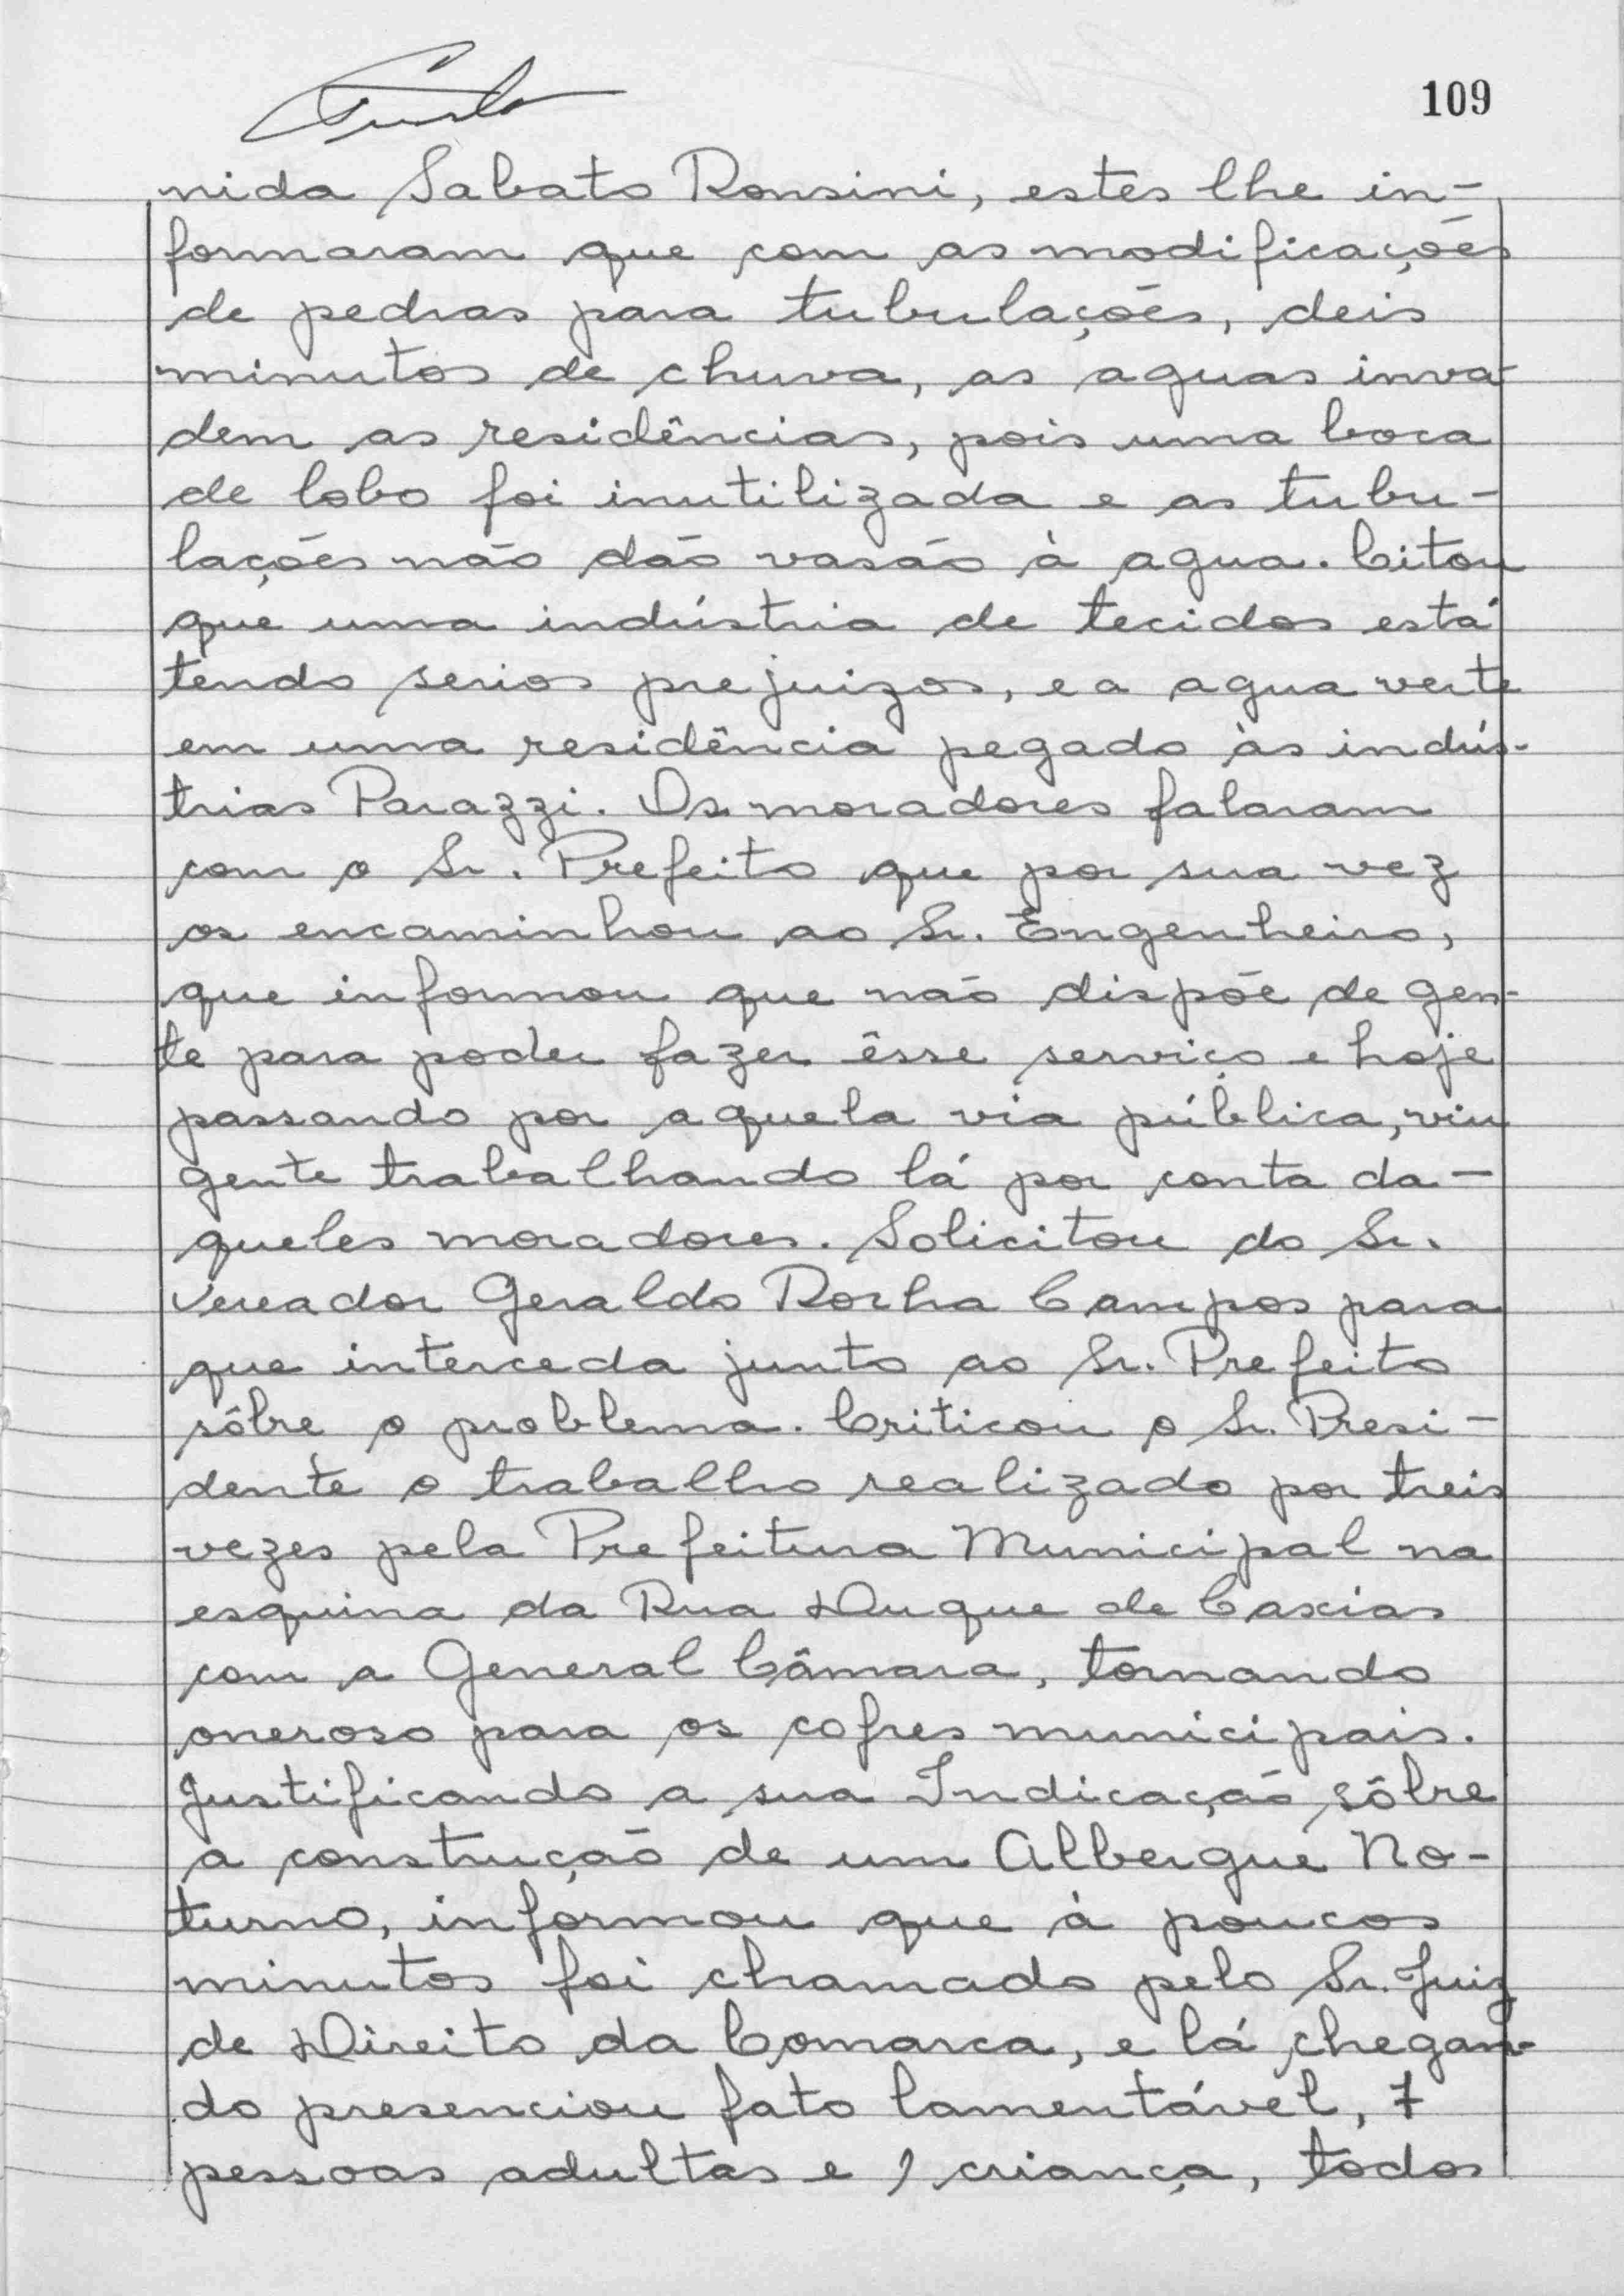 109
nida Sabato Ronsini, estes lhe in-
formaram que com as modificações
de pedras para tubulações, deis
minutos de chuva, as aguas inva-
dem as residências, pois uma boca
de lobo foi inutilizada e as tubu-
lações não dão vasão à agua. Citou
que uma indústria de tecidos está
tendo serios prejuizos, e a agua verte
em uma residência pegado às indús-
trias Parazzi. Os moradores falaram
com o Sr. Prefeito que por sua vez
os encaminhou ao Sr. Engenheiro,
que informou que não dispõe de gen-
te para poder fazer êsse serviço e hoje
passando por aquela via pública, viu
gente trabalhando lá por conta da-
queles moradores. Solicitou do Sr.
Vereador Geraldo Rocha Campos para
que interceda junto ao Sr. Prefeito
sôbre o problema. Criticou o Sr. Presi-
dente o trabalho realizado por treis
vezes pela Prefeitura Municipal na
esquina da Rua Duque de Caxias
com a General Câmara, tornando
oneroso para os cofres municipais.
Justificando a sua Indicação sôbre
a construção de um Albergue No-
turno, informou que à poucos
minutos foi chamado pelo Sr. Juiz
de Direito da Comarca, e lá chegan-
do presenciou fato lamentável, 7
pessoas adultas e 1 criança, todos